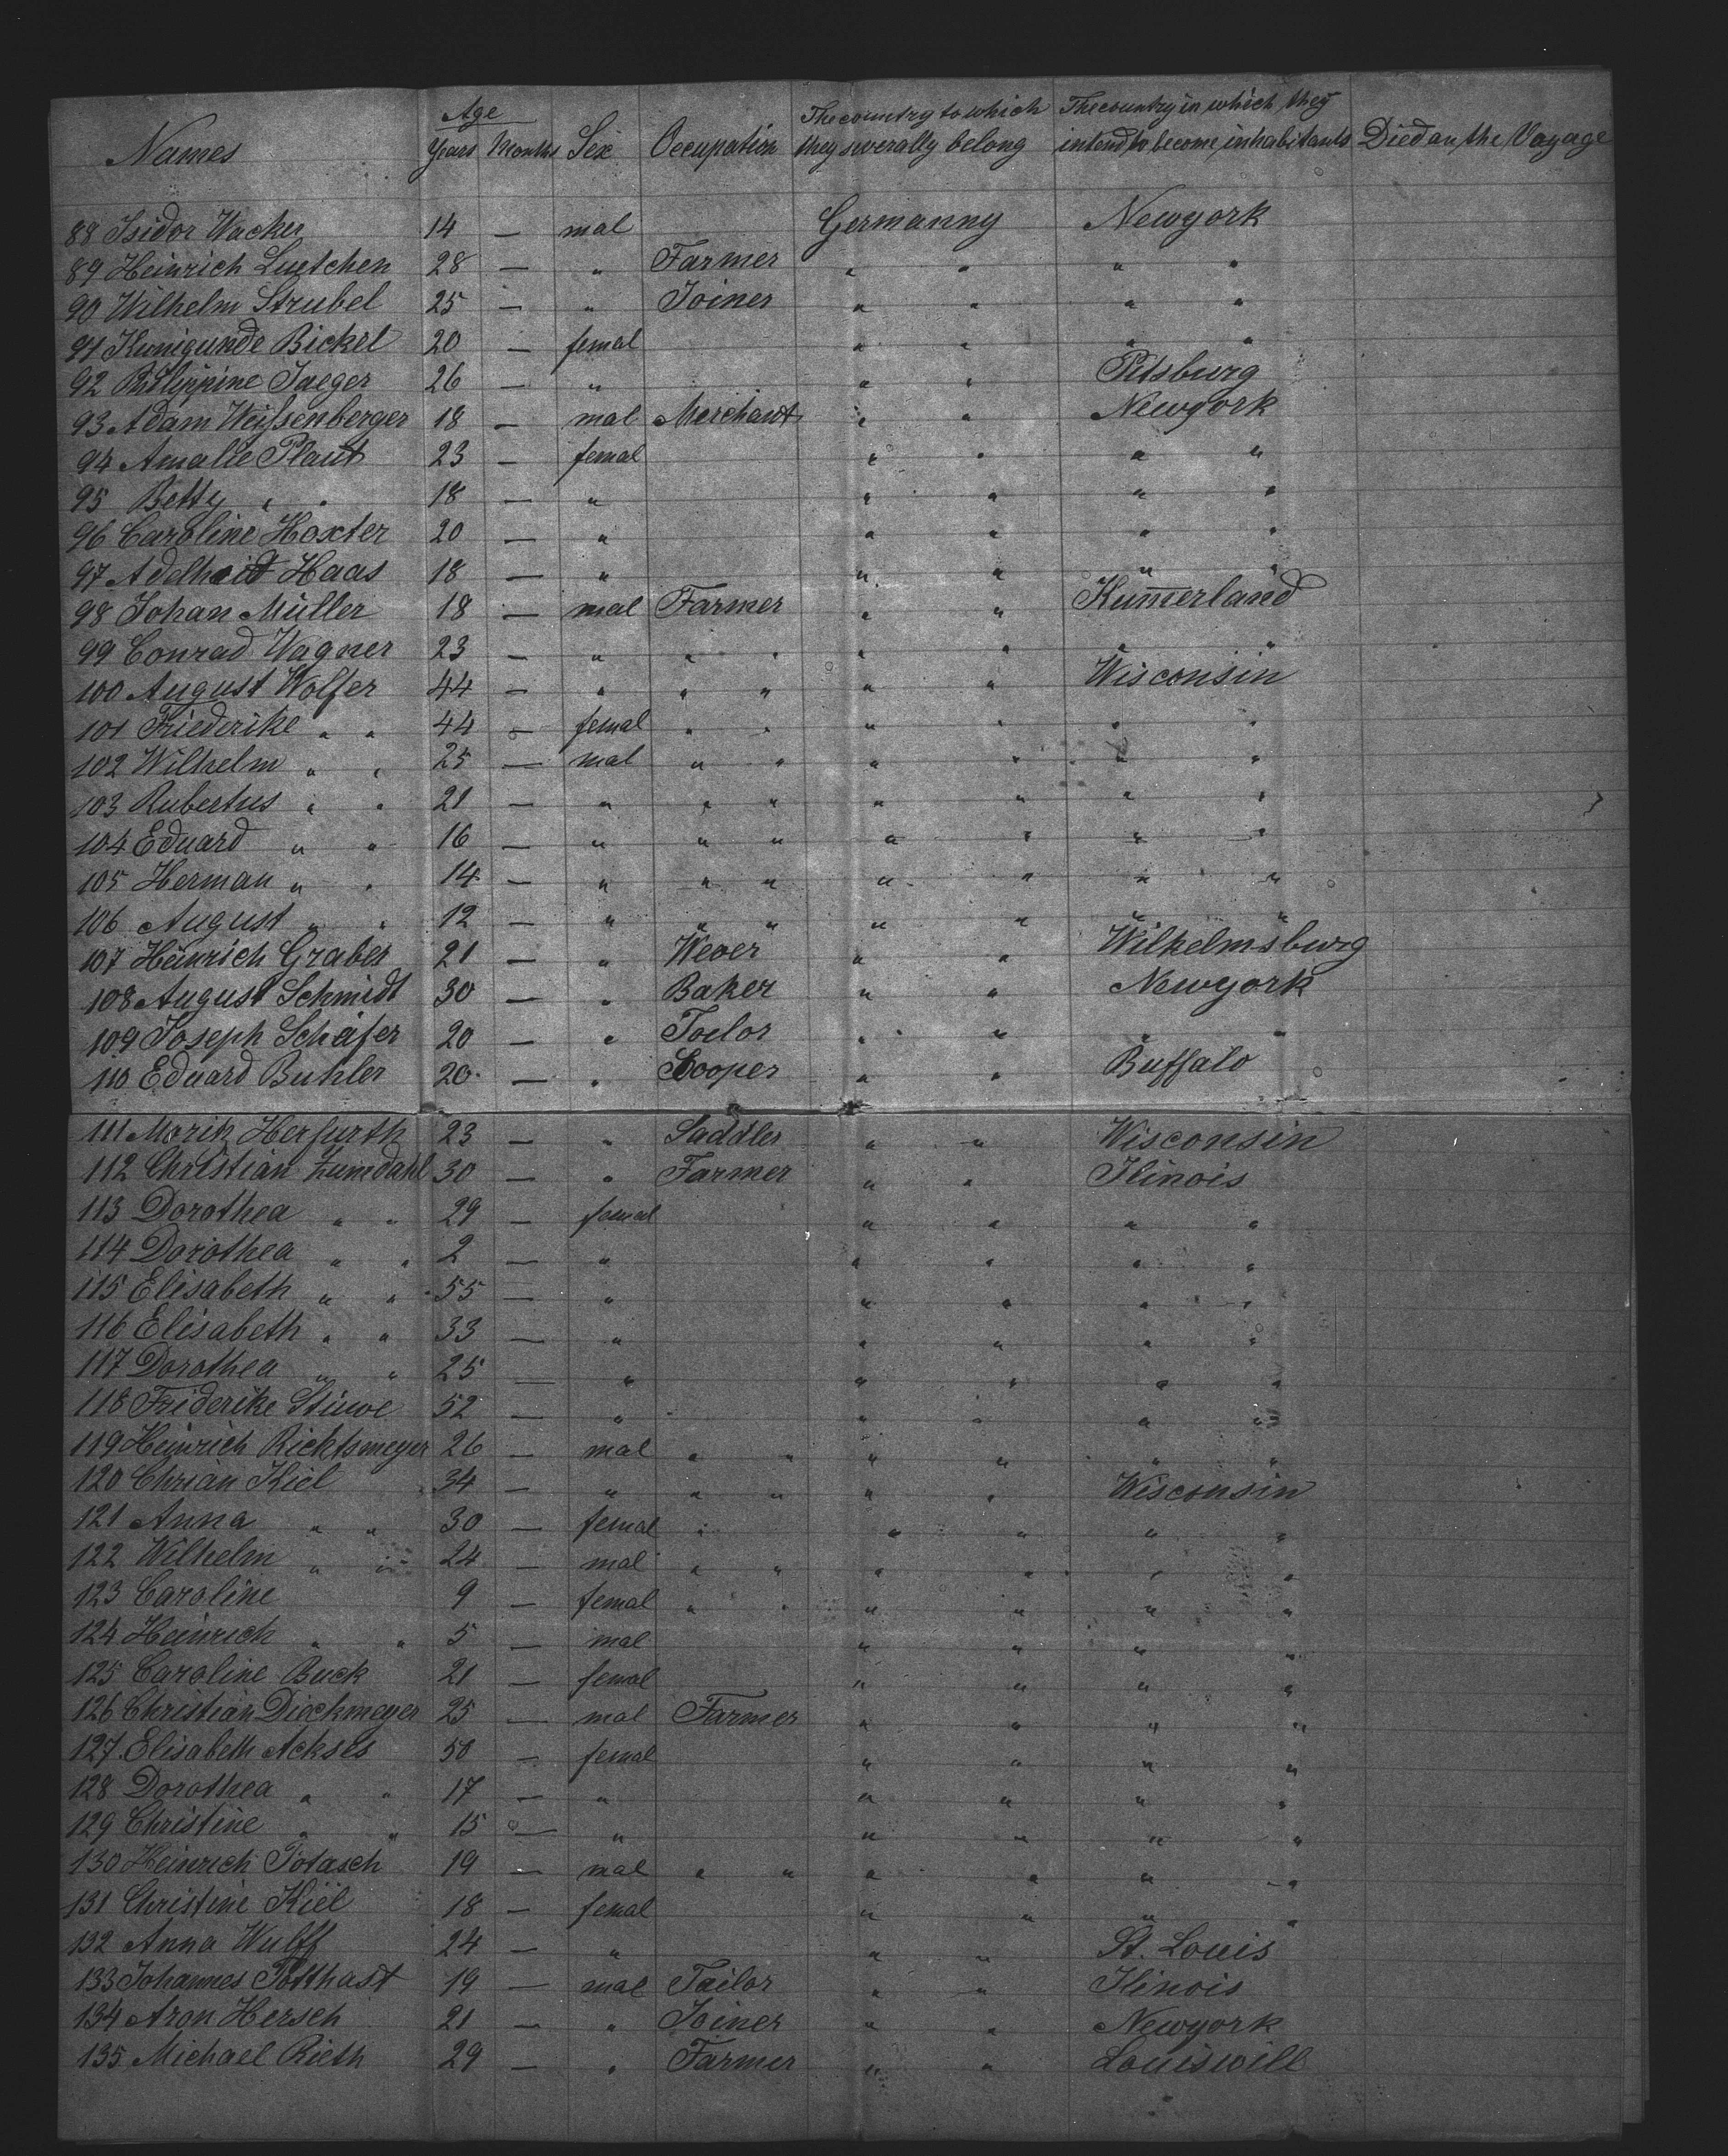 Names Age Years Months Sex Occupation The country to which they severally belong The country in which they intend to become inhabitants Died on the Voyage
88 Isidor Wacker 14 — mal Germanny Newyork
89 Heinrich Luetchen 28 — " Farmer " " " "
90 Wilhelm Strubel 25 — " Joiner " " " "
91 Kunigunde Bickel 20 — femal " " " "
92 Philippine Jaeger 26 — " " " Pitsburg
93 Adam Weißenberger 18 — mal Merchant " " Newyork
94 Amalie Plaut 23 — femal " " " "
95 Betty " " 18 — " " " " "
96 Caroline Hoxter 20 — " " " " "
97 Adelheid Haas 18 — " " " " "
98 Johan Müller 18 — mal Farmer " " Kum̅erland
99 Conrad Wagner 23 — " " " " " " "
100 August Wolfer 44 — " " " " " Wisconsin
101 Friederike " " 44 — femal " " " " " "
102 Wilhelm " " 25 — mal " " " " " "
103 Rubertus " " 21 — " " " " " " "
104 Eduard " " 16 — " " " " " " "
105 Herman " " 14 — " " " " " " "
106 August " " 12 — " " " " " " "
107 Heinrich Graber 21 — " Wever " " Wilhelmsburg
108 August Schmidt 30 — " Baker " " Newyork
109 Joseph Schäfer 20 — " Toelor " " " "
110 Eduard Buhler 20 — " Cooper " " Buffalo
111 Moritz Herfurth 23 — " Saddler " " Wisconsin
112 Christian Zumdahl 30 — " Farmer " " Ilinois
113 Dorothea " " 29 — femal " " " "
114 Dorothea " " 2 — " " " " "
115 Elisabeth " " 55 — " " " " "
116 Elisabeth " " 33 — " " " " "
117 Dorothea " " 25 — " " " " "
118 Friderike Stüwe 52 — " " " " "
119 Heinrich Richtsmeyer 26 — mal " " " " " "
120 Chrian Kiel 34 — " " " " " Wisconsin
121 Anna " " 30 — femal " " " " "
122 Wilhelm " " 24 — mal " " " " " "
123 Caroline 9 — femal " " " " " "
124 Heinrich " " 5 — mal " " " "
125 Caroline Buck 21 — femal " " " "
126 Christian Dieckmeyer 25 — mal Farmer " " " "
127 Elisabeth Ackses 50 — femal " " " "
128 Dorothea " " 17 — " " " " "
129 Christine " " 15 — " " " " "
130 Heinrich Potasch 19 — mal " " " " " "
131 Christine Kiel 18 — femal " " " "
132 Anna Wulff 24 — " " " St. Louis
133 Johannes Potthast 19 — mal Tailor " " Ilinois
134 Aron Hersch 21 — " Joiner " " Newyork
135 Michael Rieth 29 — " Farmer " " Louiswill